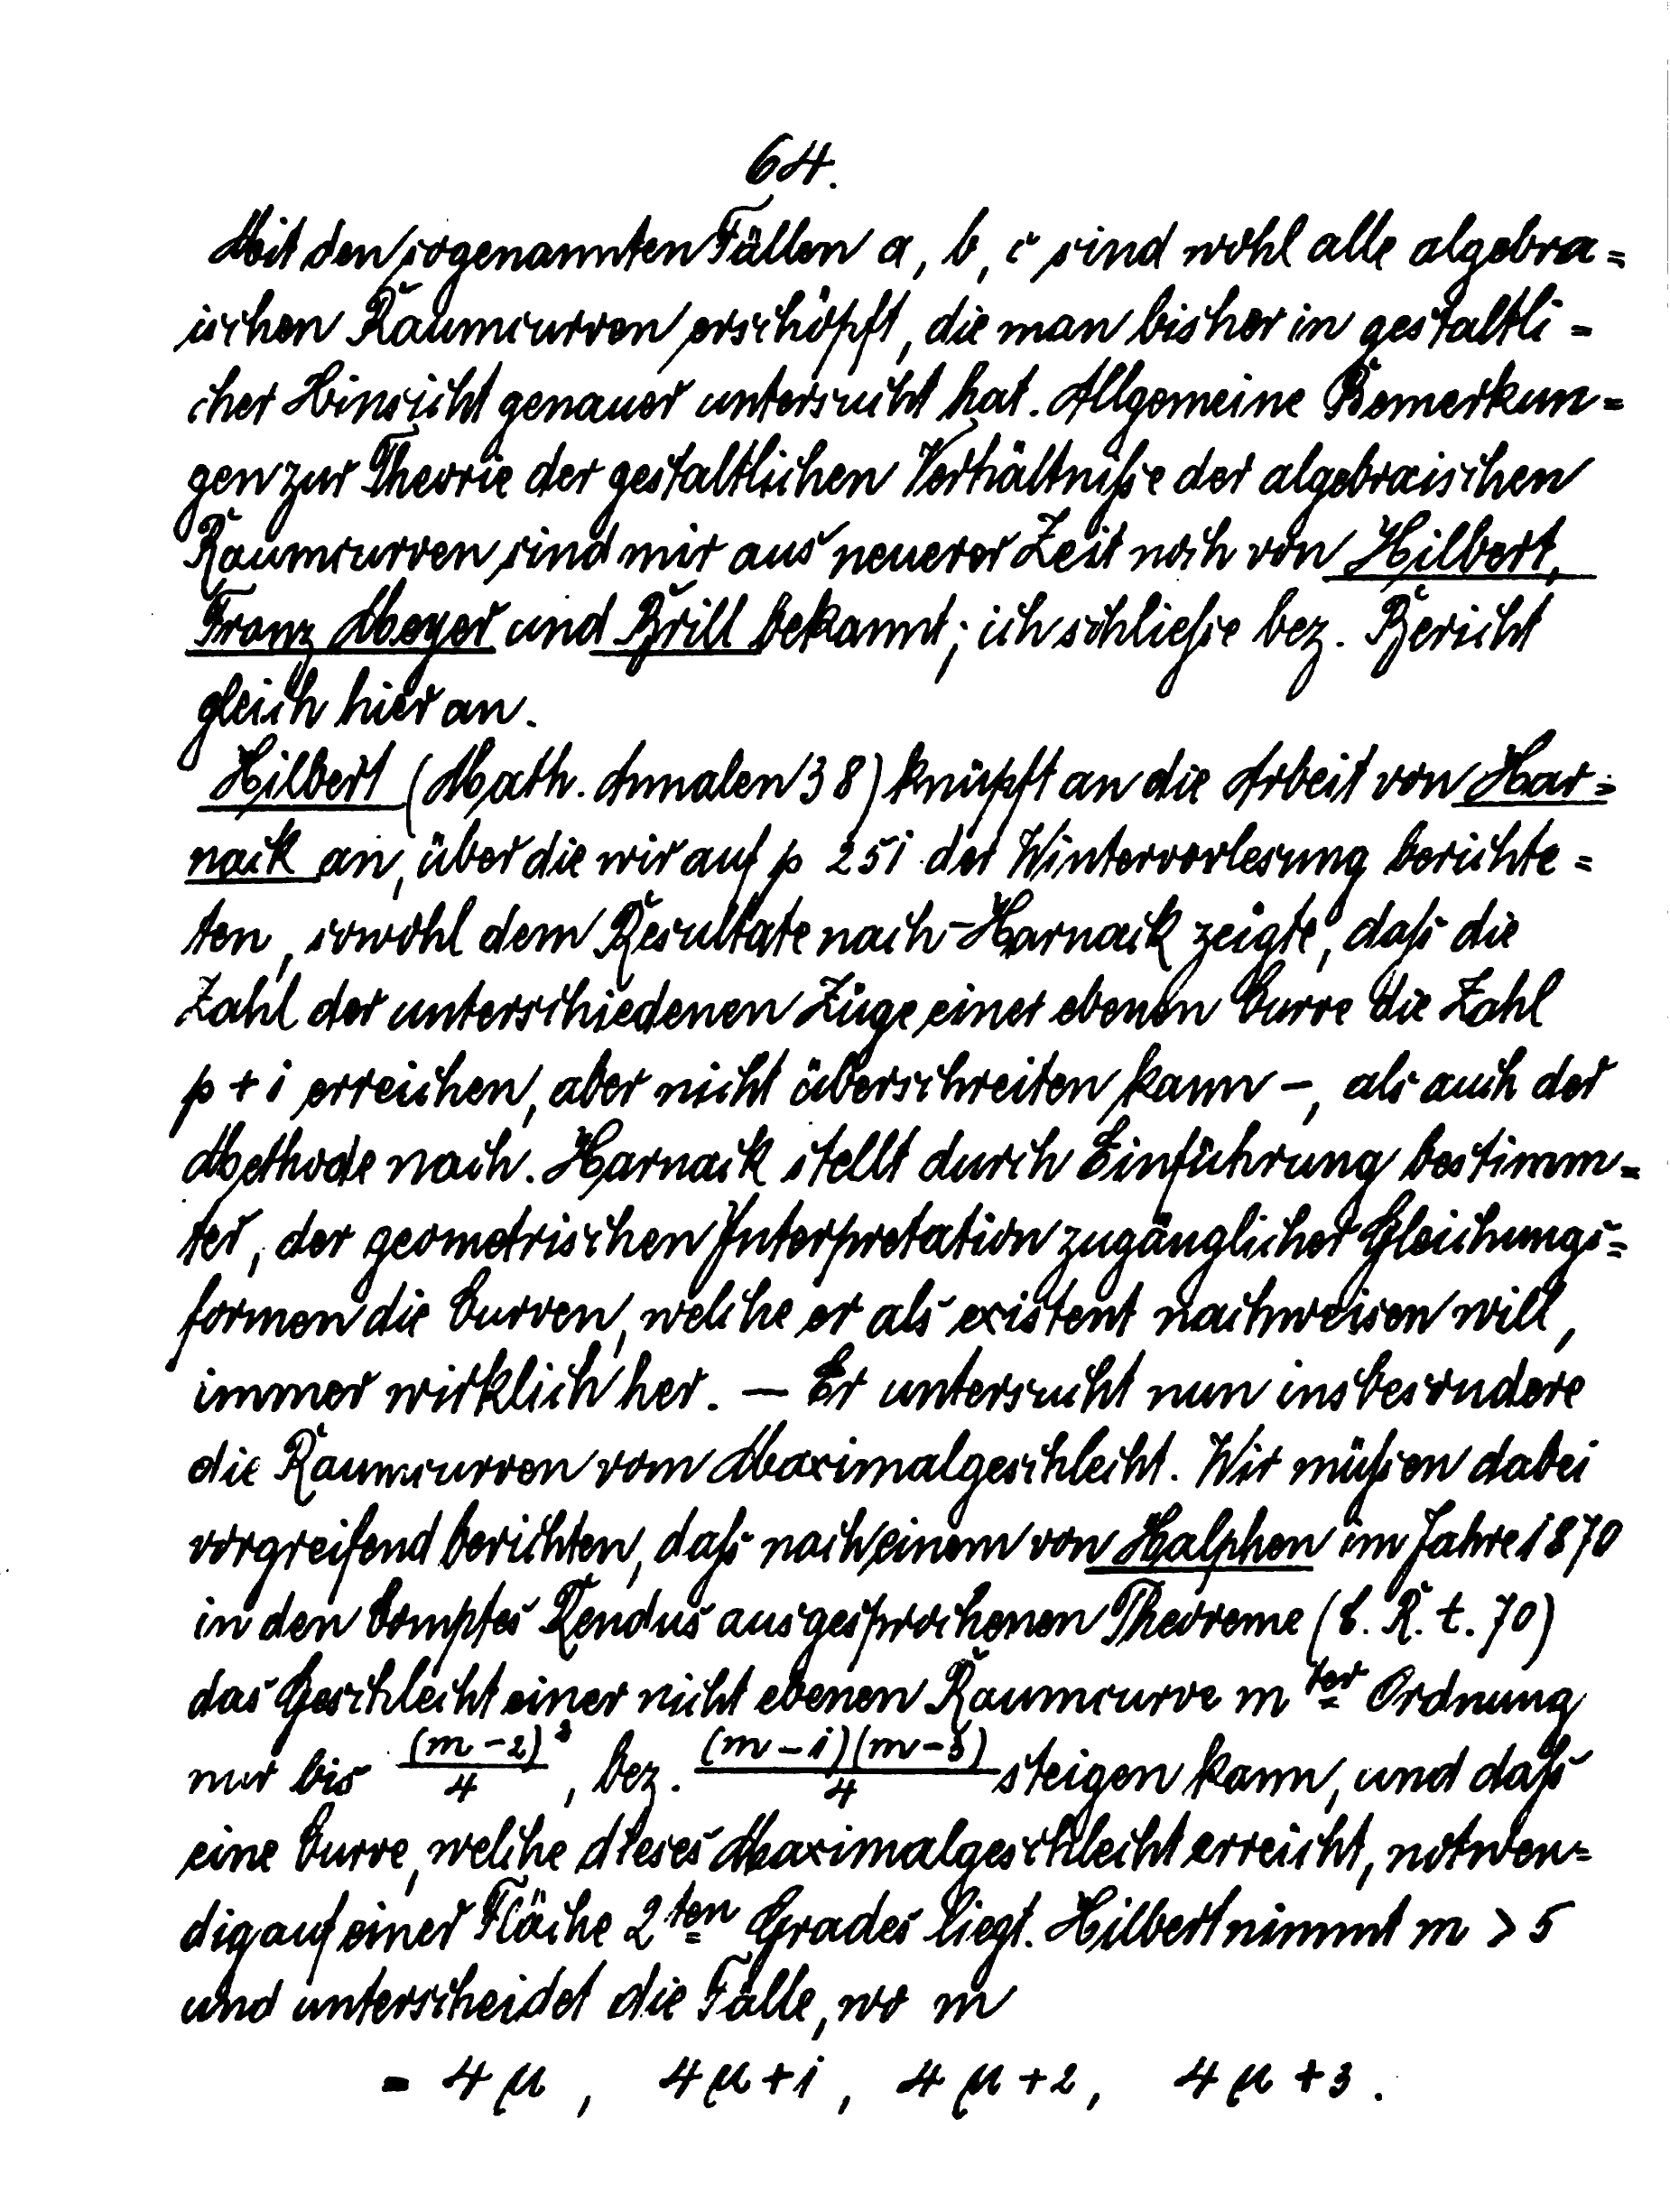 64.
Mit den sogenannten Fällen a, b, c sind wohl alle algebra=
ischen Raumcurven erschöpft, die man bisher in gestaltli=
cher Hinsicht genauer untersucht hat. Allgemeine Bemerkun=
gen zur Theorie der gestaltlichen Verhältniße der algebraischen
Raumcurven sind mir aus neuerer Zeit noch von Hilbert,
Franz Meyer und Brill bekannt; ich schließe bez. Bericht
gleich hier an.
Hilbert (Math. Annalen 38) knüpft an die Arbeit von Har=
nack an, über die wir auf p 251 der Wintervorlesung berichte=
ten, sowohl dem Resultate nach - Harnack zeigte, daß die
Zahl der unterschiedenen Züge einer ebenen Curve die Zahl
p + 1 erreichen, aber nicht überschreiten kann -, als auch der
Methode nach. Harnack stellt durch Einführung bestimm=
ter, der geometrischen Interpretation zugänglicher Gleichungs=
formen die Curven, welche er als existent nachweisen will,
immer wirklich her. — Er untersucht nun insbesondere
die Raumcurven vom Maximalgeschlecht. Wir müßen dabei
vorgreifend berichten, daß nach einem von Halphen im Jahre 1870
in den Comptes Rendus ausgesprochenen Theoreme (C. R. t. 70)
das Geschlecht einer nicht ebenen Raumcurve m ter Ordnung
nur bis (m-2)²/4, bez. (m-1)(m-3)/4 steigen kann, und daß
eine Curve, welche dieses Maximalgeschlecht erreicht, notwen=
dig auf einer Fläche 2ten Grades liegt. Hilbert nimmt m > 5
und unterscheidet die Fälle, wo m
= 4μ, 4μ+1, 4μ+2, 4μ+3.